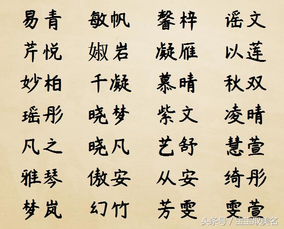 易青 敏帆 馨梓 谣文
芹悦 婌岩 凝雁 以莲
妙柏 千凝 慕晴 秋双
瑶彤 晓梦 紫文 凌晴
凡之 晓凡 艺舒 慧萱
雅琴 傲安 从安 绮彤
梦岚 幻竹 芳雯 雯萱